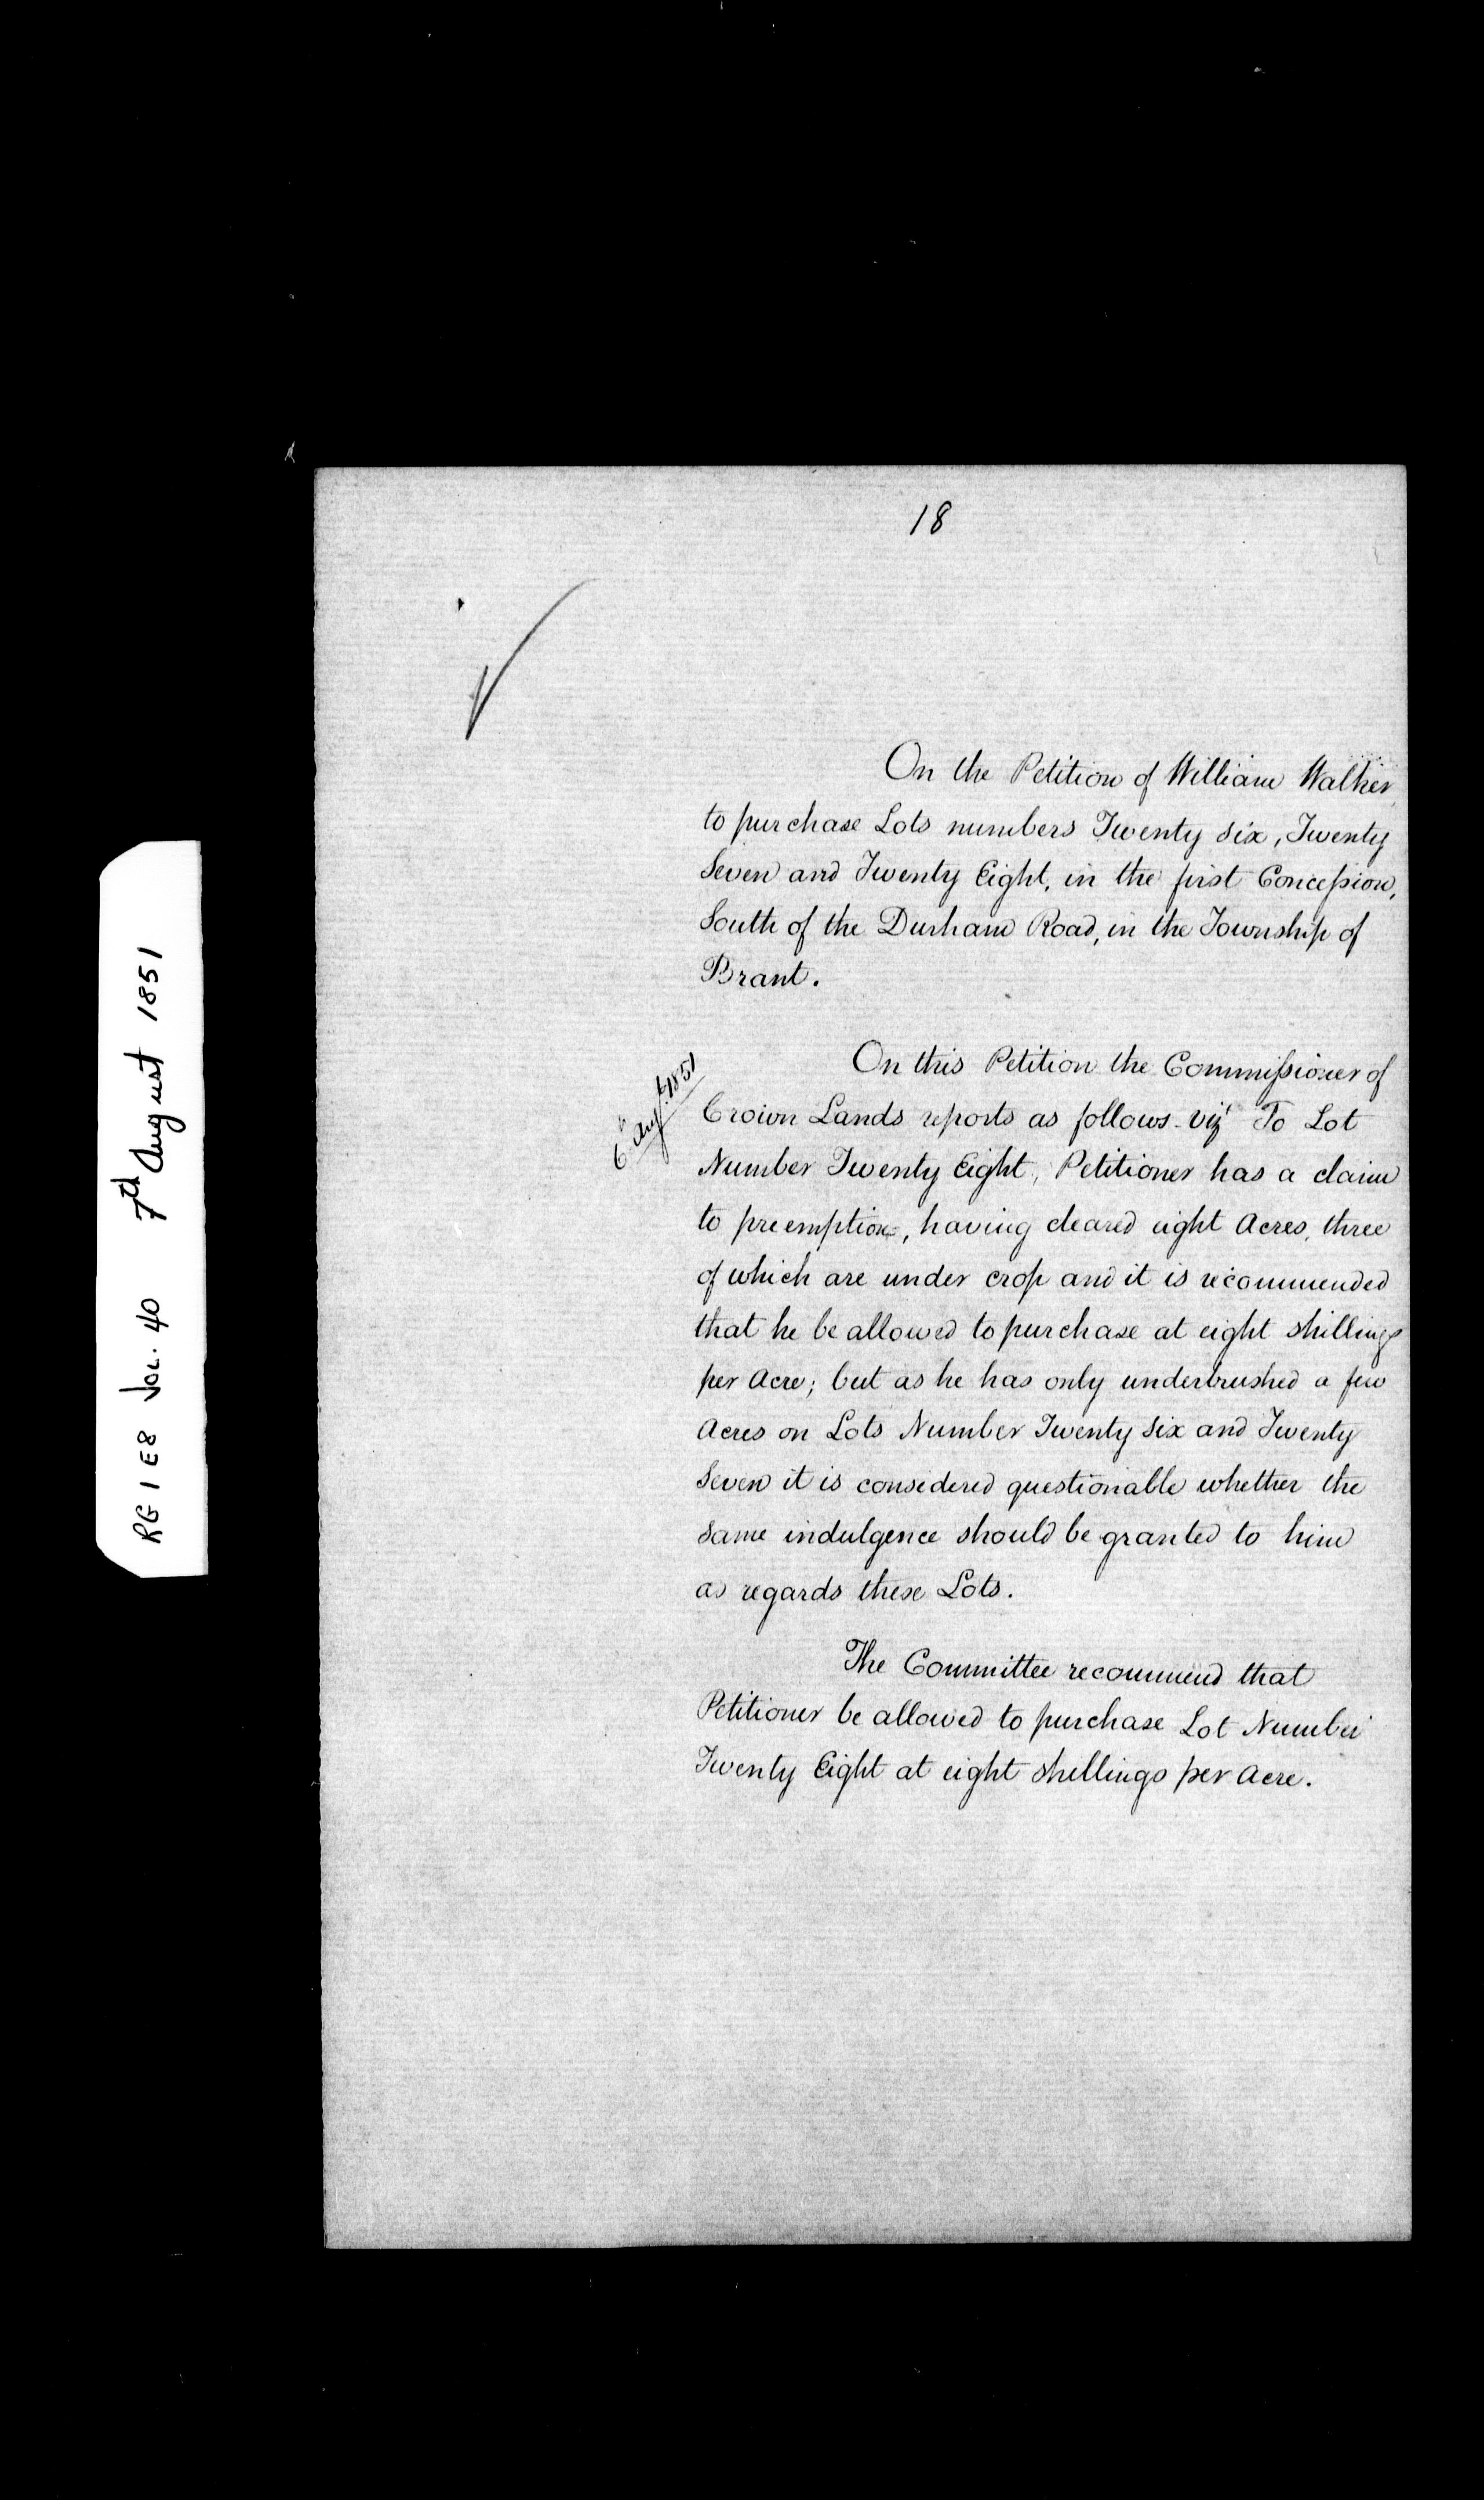 18
On the Petition of William Walker
to purchase Lots numbers Twenty six, Twenty
Seven and Twenty Eight, in the first Concession,
South of the Durham Road, in the Township of
Brant.
6th Augt. 1851
On this Petition the Commissioner of
Crown Lands reports as follows - vizt To Lot
Number Twenty Eight, Petitioner has a claim
to preemption, having cleared eight Acres, three
of which are under crop and it is recommended
that he be allowed to purchase at eight shillings
per Acre; but as he has only underbrushed a few
Acres on Lots Number Twenty Six and Twenty
Seven it is considered questionable whether the
same indulgence should be granted to him
as regards these Lots.
The Committee recommend that
Petitioner be allowed to purchase Lot Number
Twenty Eight at eight shillings per Acre.
RG 1 E8 Vol. 40 7th August 1851